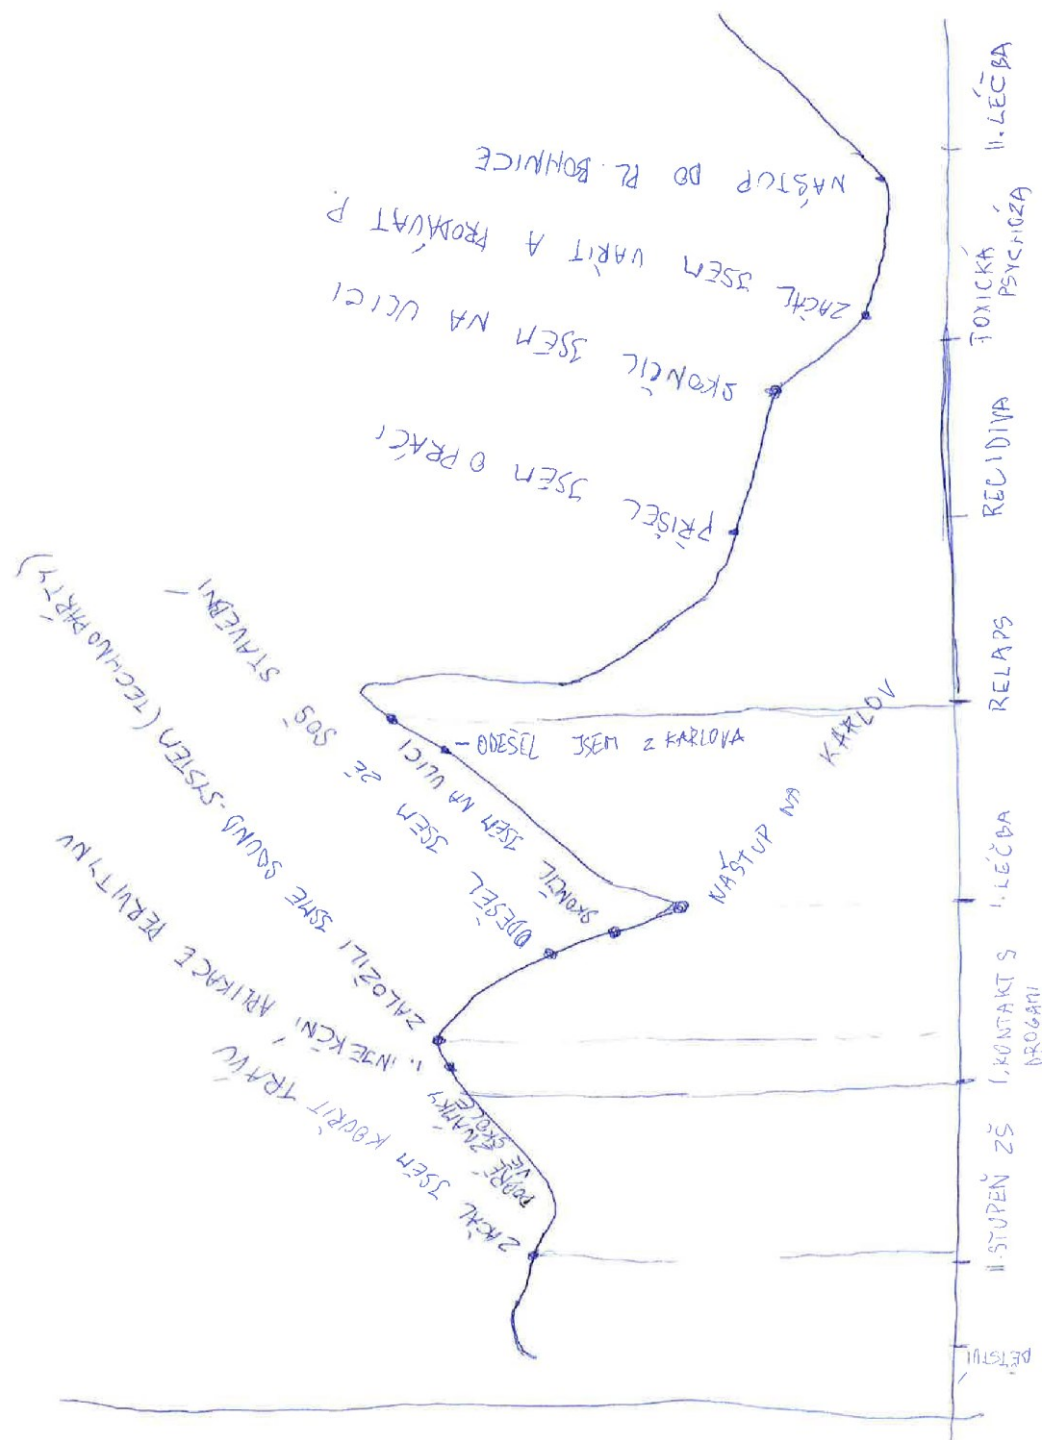 DĚTSTVÍ
II. STUPEŇ ZŠ
I. KONTAKT S
DROGAMI
I. LÉČBA
RELAPS
RECIDIVA
TOXICKÁ
PSYCHÓZA
II. LÉČBA
ZAČAL JSEM KOUŘIT TRÁVU
DOBRÉ ZNÁMKY
VE ŠKOLE
1. INJEKČNÍ APLIKACE PERVITYNU
ZALOŽILI JSME SOUND-SYSTEM (TECHNOPÁRTY)
ODEŠEL JSEM ZE SOŠ STAVEBNÍ
SKONČIL JSEM NA ULICI
NÁSTUP NA KARLOV
- ODEŠEL JSEM Z KARLOVA
PŘIŠEL JSEM O PRÁCI
SKONČIL JSEM NA ULICI
ZAČAL JSEM VAŘIT A PRODÁVAT P.
NÁSTUP DO PL. BOHNICE